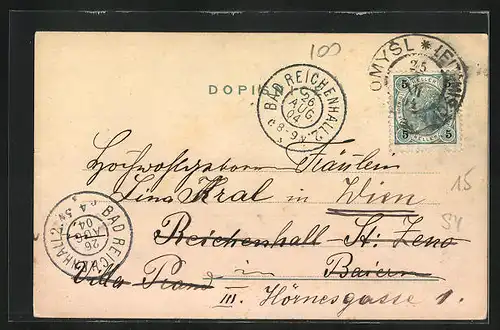 100
OMYŠL * LEITOMISCHL
25
HELLER
5 5
DOPIS
BAD REICHENHALL 2.
26
AUG
04
8-9 V.
Hochwohlgeboren Fräulein
Lina Kral in Wien
15
Reichenhall St. Zeno
BAD REICHENHALL 2.
26
AUG
04
Villa
in Baiern
III. Hörnesgasse 1.